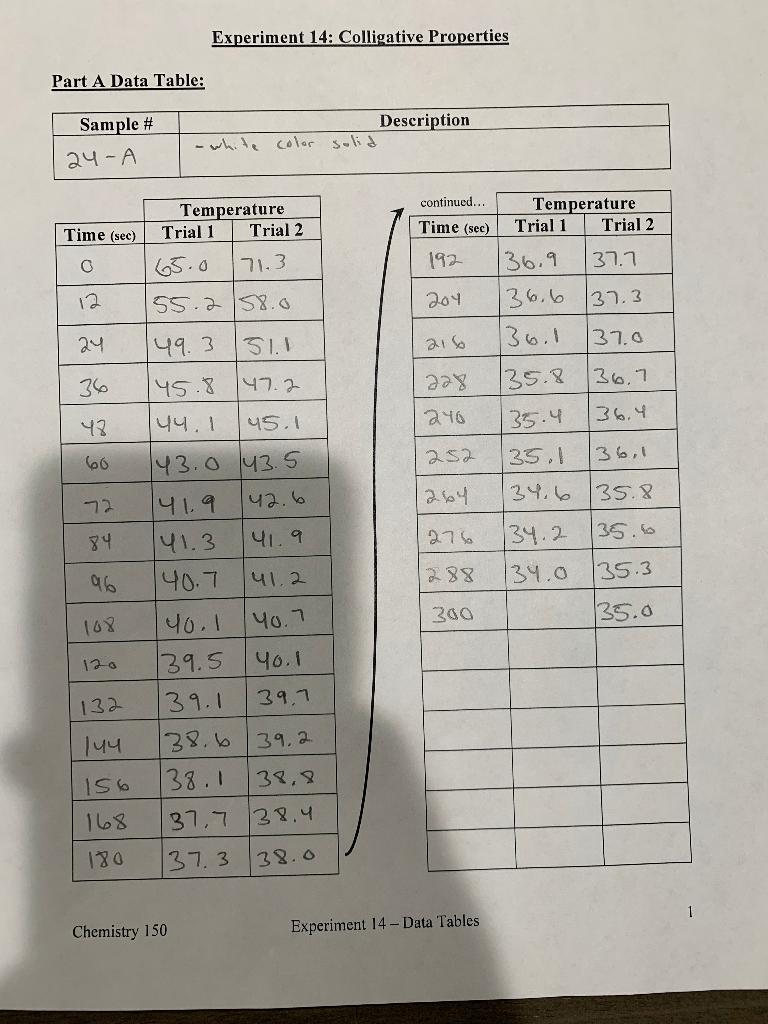 Experiment 14: Colligative Properties
Part A Data Table:
Sample # Description
24-A - white color solid
Temperature
Time (sec) Trial 1 Trial 2
0 65.0 71.3
12 55.2 58.0
24 49.3 51.1
36 45.8 47.2
48 44.1 45.1
60 43.0 43.5
72 41.9 42.6
84 41.3 41.9
96 40.7 41.2
108 40.1 40.7
120 39.5 40.1
132 39.1 39.7
144 38.6 39.2
156 38.1 38.8
168 37.7 38.4
180 37.3 38.0
continued... Temperature
Time (sec) Trial 1 Trial 2
192 36.9 37.7
204 36.6 37.3
216 36.1 37.0
228 35.8 36.7
240 35.4 36.4
252 35.1 36.1
264 34.6 35.8
276 34.2 35.6
288 34.0 35.3
300 35.0
Chemistry 150 Experiment 14 – Data Tables 1